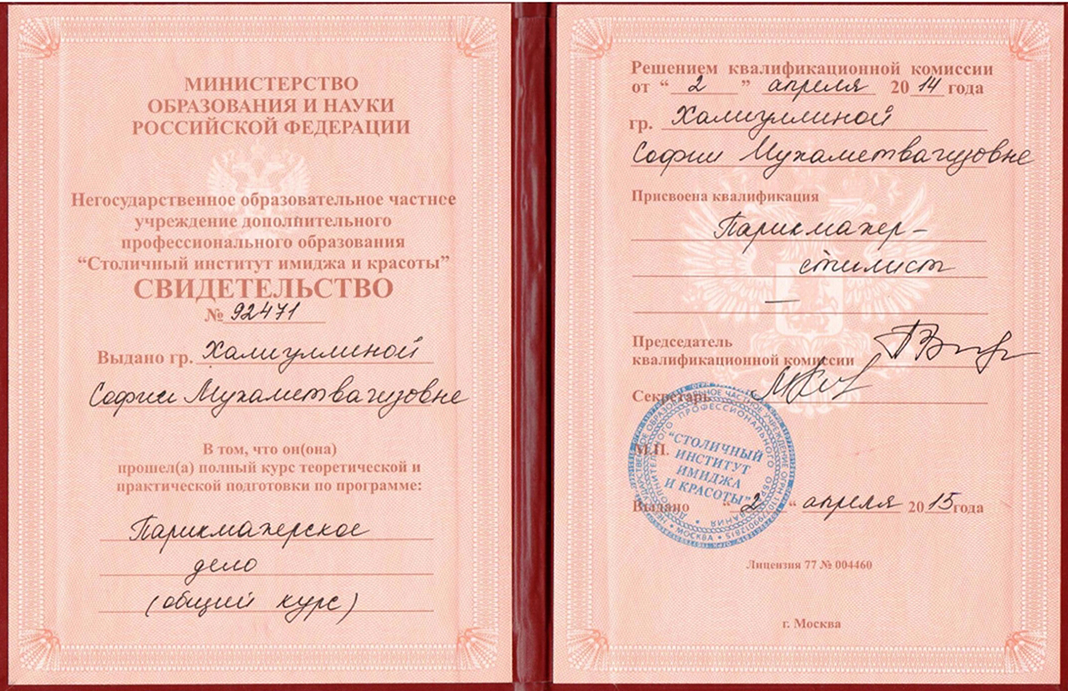 МИНИСТЕРСТВО
ОБРАЗОВАНИЯ И НАУКИ
РОССИЙСКОЙ ФЕДЕРАЦИИ
Негосударственное образовательное частное
учреждение дополнительного
профессионального образования
“Столичный институт имиджа и красоты”
СВИДЕТЕЛЬСТВО
№ 92471
Выдано гр. Халиуллиной
Софии Мухаметвагизовне
В том, что он(она)
прошел(а) полный курс теоретической и
практической подготовки по программе:
Парикмахерское
дело
(общий курс)
Решением квалификационной комиссии
от “ 2 ” апреля 2014 года
гр. Халиуллиной
Софии Мухаметвагизовне
Присвоена квалификация
Парикмахер-
стилист
Председатель
квалификационной комиссии
Секретарь
М.П.
"СТОЛИЧНЫЙ
ИНСТИТУТ
ИМИДЖА
И КРАСОТЫ"
Выдано “ 2 “ апреля 2015 года
Лицензия 77 № 004460
г. Москва